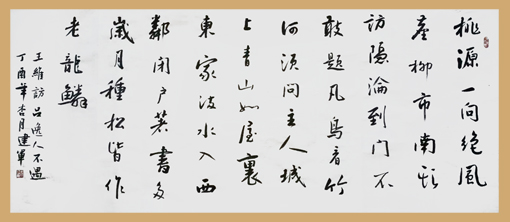 桃源一向絕風
塵柳市南頭
訪隱淪到門不
敢題凡鳥看竹
何須問主人城
上青山如屋裏
東家流水入西
鄰閉戶著書多
歲月種松皆作
老龍鱗
王維訪吕逸人不遇
丁酉年杏月建軍